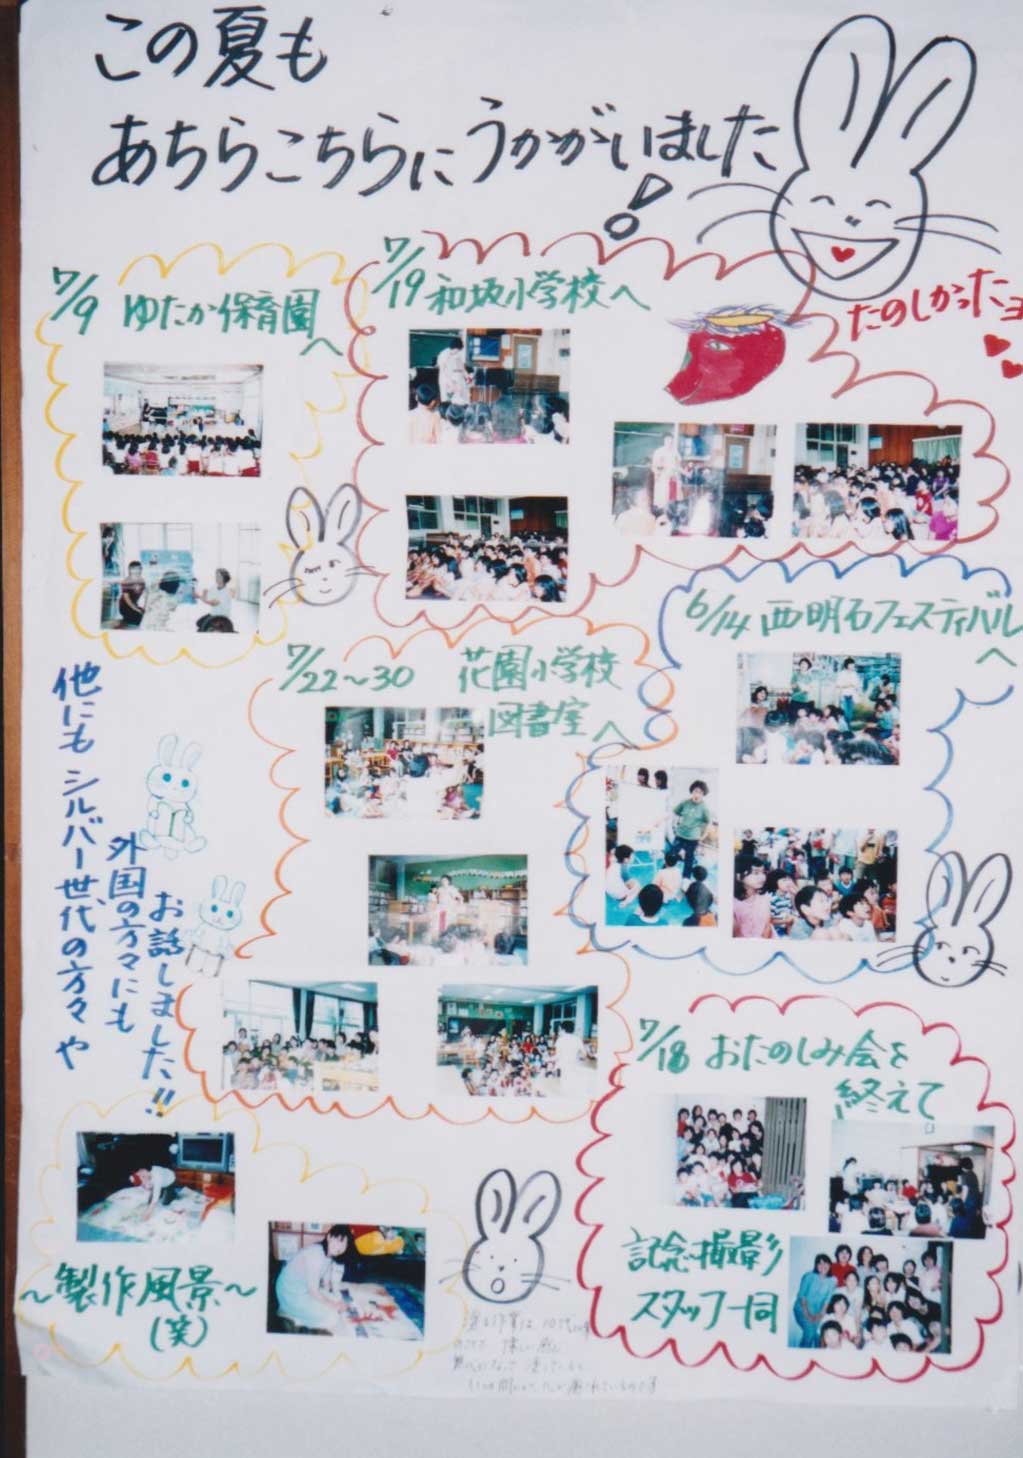 この夏も
あちらこちらにうかがいました!
たのしかったヨ
7/9 ゆたか保育園へ
7/19 和坂小学校へ
6/14 西明石フェスティバルへ
7/22〜30 花園小学校
図書室へ
他にもシルバー世代の方々や
外国の方々にも
お話しました!!
7/18 おたのしみ会を
終えて
記念撮影
スタッフ一同
〜製作風景〜
(笑)